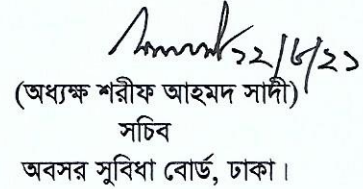 ২২/৮/২১
(অধ্যক্ষ শরীফ আহমদ সাদী)
সচিব
অবসর সুবিধা বোর্ড, ঢাকা।